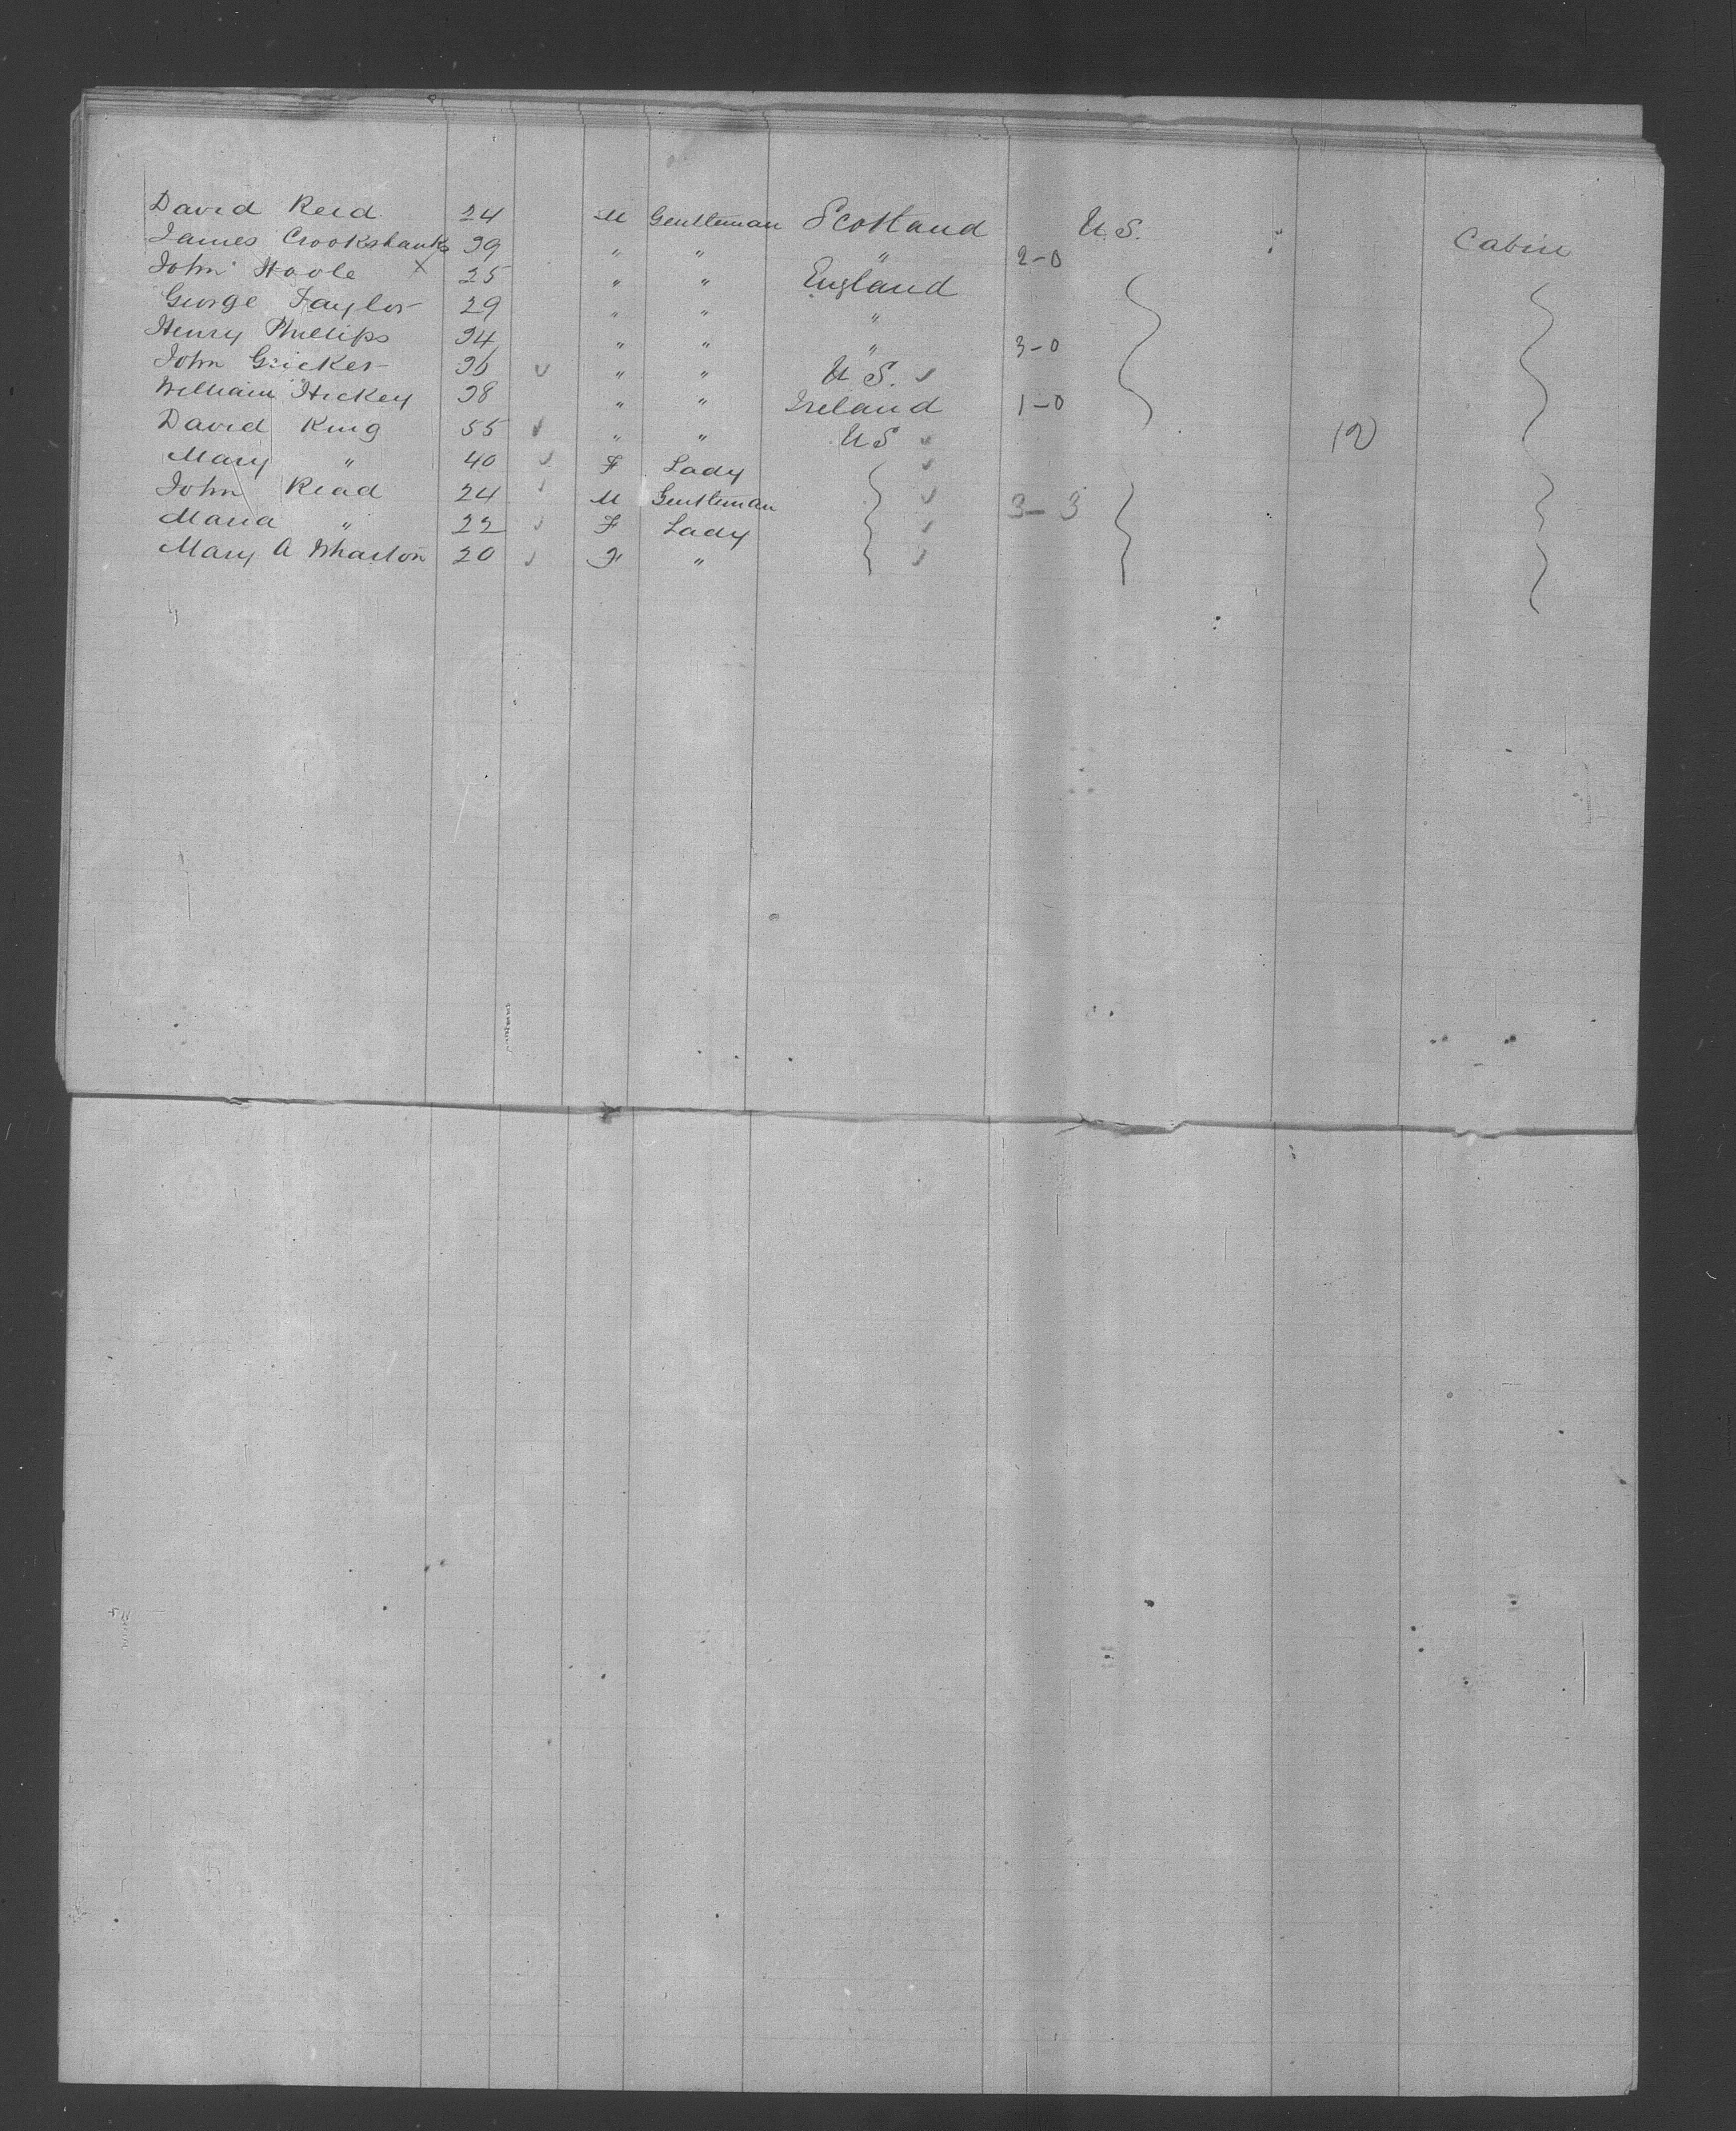 David Reid 24 M Gentleman Scotland U.S. Cabin
James Crookshanks 39 " " " 2-0
John Hoole X 25 " " England
George Taylor 29 " " "
Henry Phillips 34 " " " 3-0
John Gricker 36 ✓ " " U S. ✓
William Hickey 38 " " Ireland 1-0
David King 55 ✓ " " U S ✓ 12
Mary " 40 ✓ F Lady ✓
John Read 24 ✓ M Gentleman ✓ 3-3
Maria " 22 ✓ F Lady ✓
Mary A Wharton 20 ✓ F " ✓